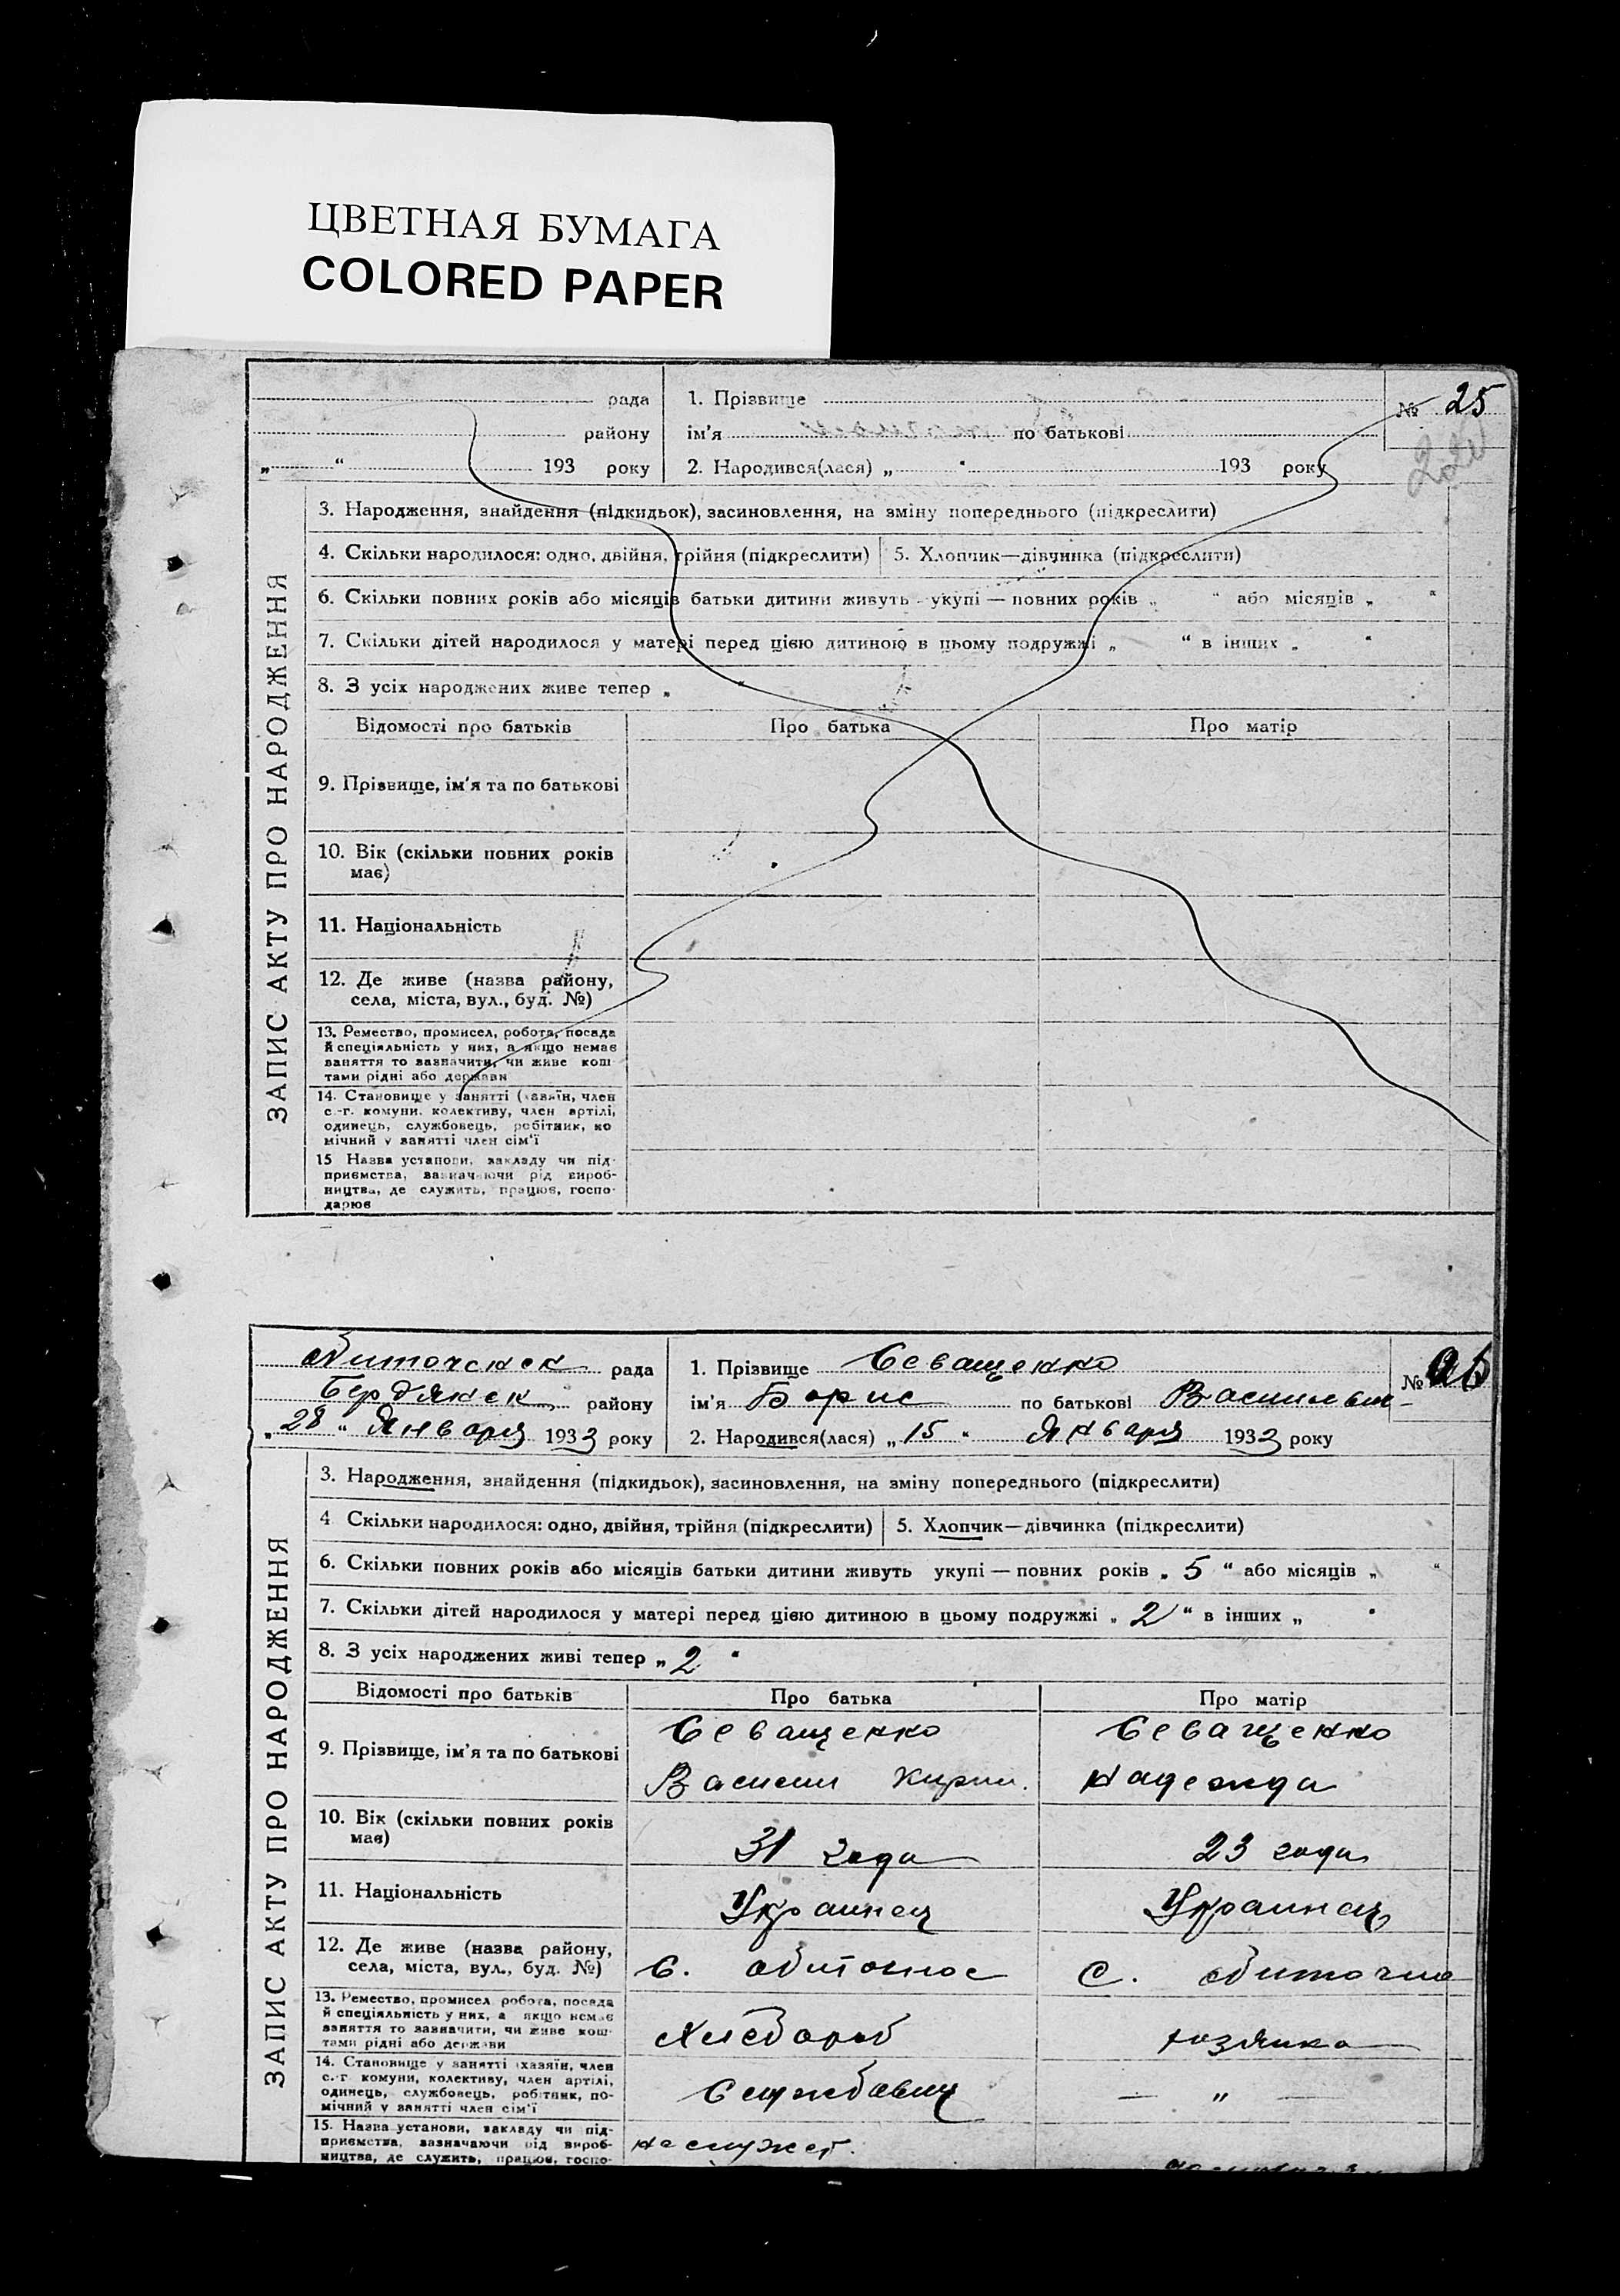 ЦВЕТНАЯ БУМАГА
COLORED PAPER
рада
району
„ “ 193 року
1. Прізвище
ім'я по батькові
2. Народився(лася) „ “ 193 року
№ 25
ЗАПИС АКТУ ПРО НАРОДЖЕННЯ
3. Народження, знайдення (підкидьок), засиновлення, на зміну попереднього (підкреслити)
4. Скільки народилося: одно, двійня, трійня (підкреслити) 5. Хлопчик—дівчинка (підкреслити)
6. Скільки повних років або місяців батьки дитини живуть укупі — повних років „ “ або місяців „ “
7. Скільки дітей народилося у матері перед цією дитиною в цьому подружжі „ “ в інших „ “
8. З усіх народжених живе тепер „ “
Відомості про батьків Про батька Про матір
9. Прізвище, ім'я та по батькові
10. Вік (скільки повних років
має)
11. Національність
12. Де живе (назва району,
села, міста, вул., буд. №)
13. Ремество, промисел, робота, посада
й спеціяльність у них, а якщо немає
заняття то зазначити, чи живе кош-
тами рідні або держави
14. Становище у занятті (хазяїн, член
с.-г. комуни, колективу, член артілі,
одинець, службовець, робітник, по
мічний у занятті член сім'ї
15 Назва установи, закладу чи під-
приємства, зазначаючи рід вироб-
ництва, де служить, працює, госпо-
дарює
рада
Бердянск району
„ 28 “ Января 1933 року
1. Прізвище Севащенко
ім'я Борис по батькові Васильев-
2. Народився(лася) „ 15 “ Января 1933 року
№
ЗАПИС АКТУ ПРО НАРОДЖЕННЯ
3. Народження, знайдення (підкидьок), засиновлення, на зміну попереднього (підкреслити)
4 Скільки народилося: одно, двійня, трійня (підкреслити) 5. Хлопчик—дівчинка (підкреслити)
6. Скільки повних років або місяців батьки дитини живуть укупі — повних років „ 5 “ або місяців „ “
7. Скільки дітей народилося у матері перед цією дитиною в цьому подружжі „ 2 “ в інших „ “
8. З усіх народжених живі тепер „ 2 “
Відомості про батьків Про батька Про матір
9. Прізвище, ім'я та по батькові
Севащенко
Василий Кирил.
Севащенко
Надежда
10. Вік (скільки повних років
має)
31 года 23 года
11. Національність Украинец Украинец
12. Де живе (назва району,
села, міста, вул., буд. №)
с. с.
13. Ремество, промисел робота, посада
й спеціяльність у них, а якщо немає
заняття то зазначити, чи живе кош-
тами рідні або держави
Хлебороб хозяика
14. Становище у занятті (хазяїн, член
с.-г комуни, колективу, член артілі,
одинець, службовець, робітник, по-
мічний у занятті член сім'ї
— „ —
15. Назва установи, закладу чи під-
приємства, зазначаючи рід вироб-
ництва, де служить, працює, госпо-